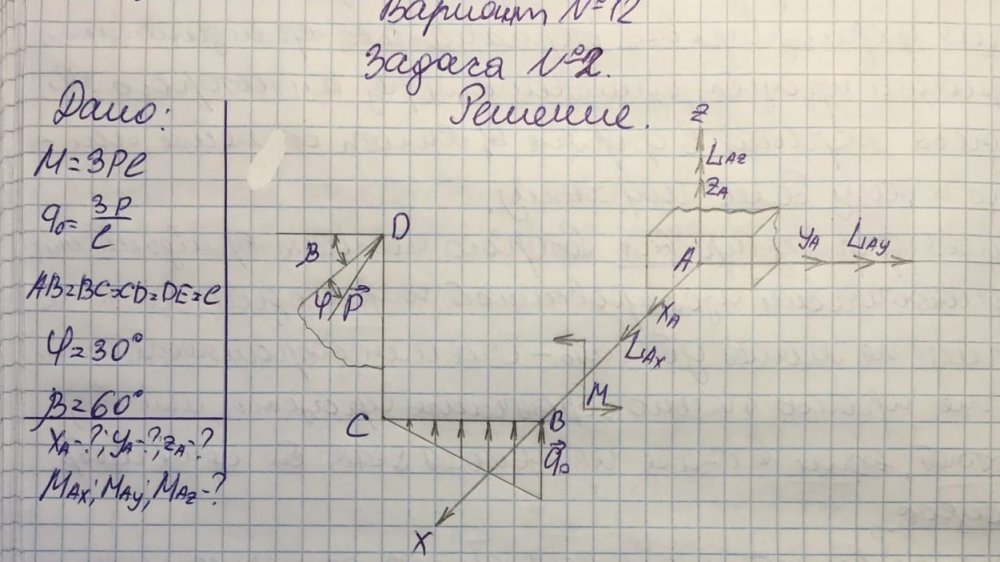 Вариант №12
Задача №2.
Дано:
Решение.
M=3Pl
q₀= 3P/l
AB=BC=CD=DE=l
φ=30°
β=60°
XA-?; YA-?; ZA-?
MAx; MAy; MAz-?
Z
LAz
ZA
A
YA
LAy
XA
LAx
M
D
β
φ
P⃗
C
B
q⃗₀
X